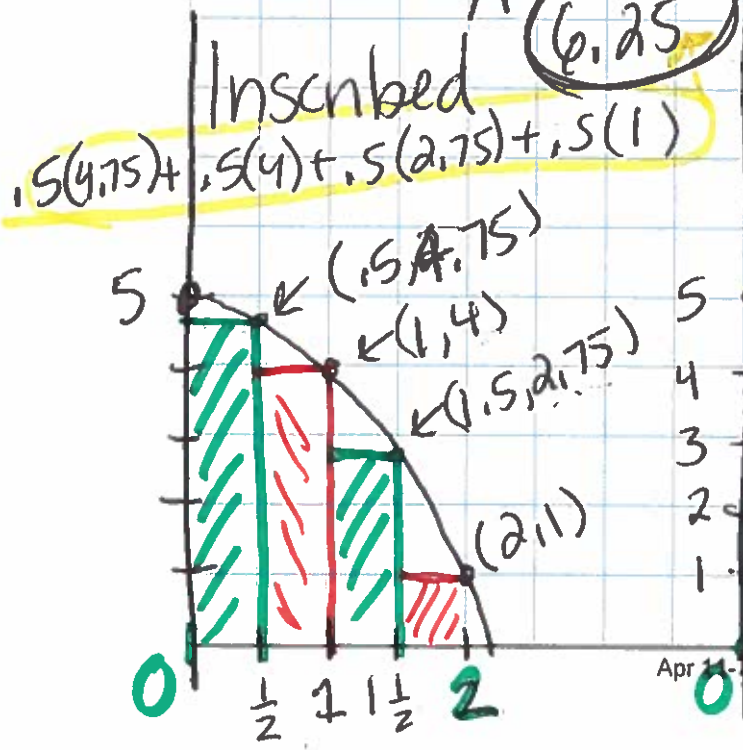 6.25
Inscribed
.5(4.75)+.5(4)+.5(2.75)+.5(1)
(.5,4.75)
5
(1,4)
(1.5,2.75)
(2,1)
5
4
3
2
1
0 1/2 1 1 1/2 2
Apr 11-
0